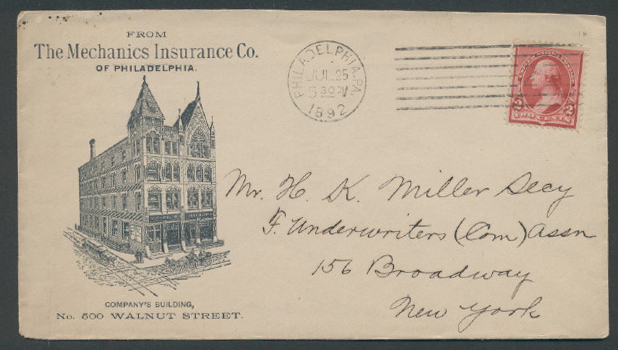 FROM
The Mechanics Insurance Co.
OF PHILADELPHIA.
PHILADELPHIA, PA.
JUL 25
1892
2 2
TWO CENTS
Mr. H. K. Miller Secy
F. Underwriters (Com) Assn
156 Broadway
New York
COMPANY'S BUILDING,
No. 500 WALNUT STREET.